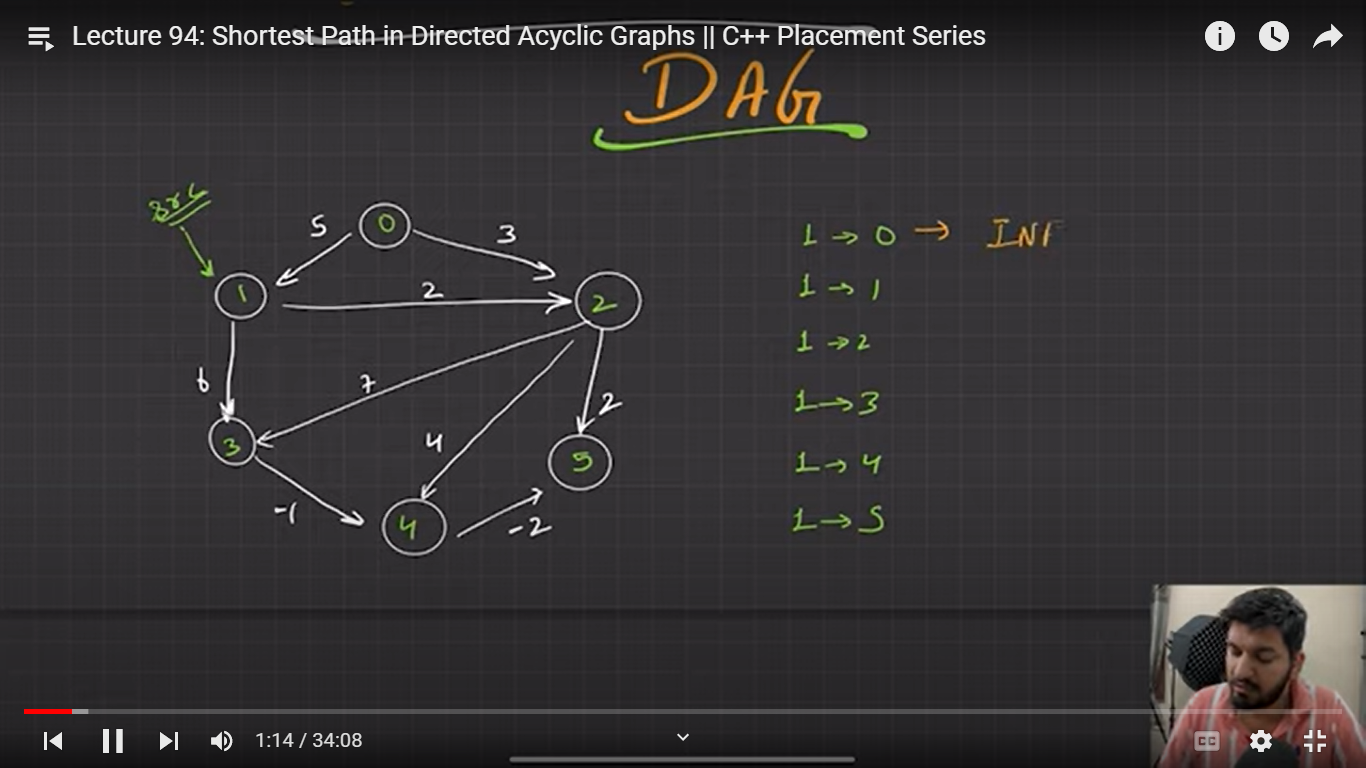 Lecture 94: Shortest Path in Directed Acyclic Graphs || C++ Placement Series
DAG
src
5
0
3
1
2
2
6
7
4
2
3
5
-1
4
-2
1 → 0 → INF
1 → 1
1 → 2
1 → 3
1 → 4
1 → 5
1:14 / 34:08
CC